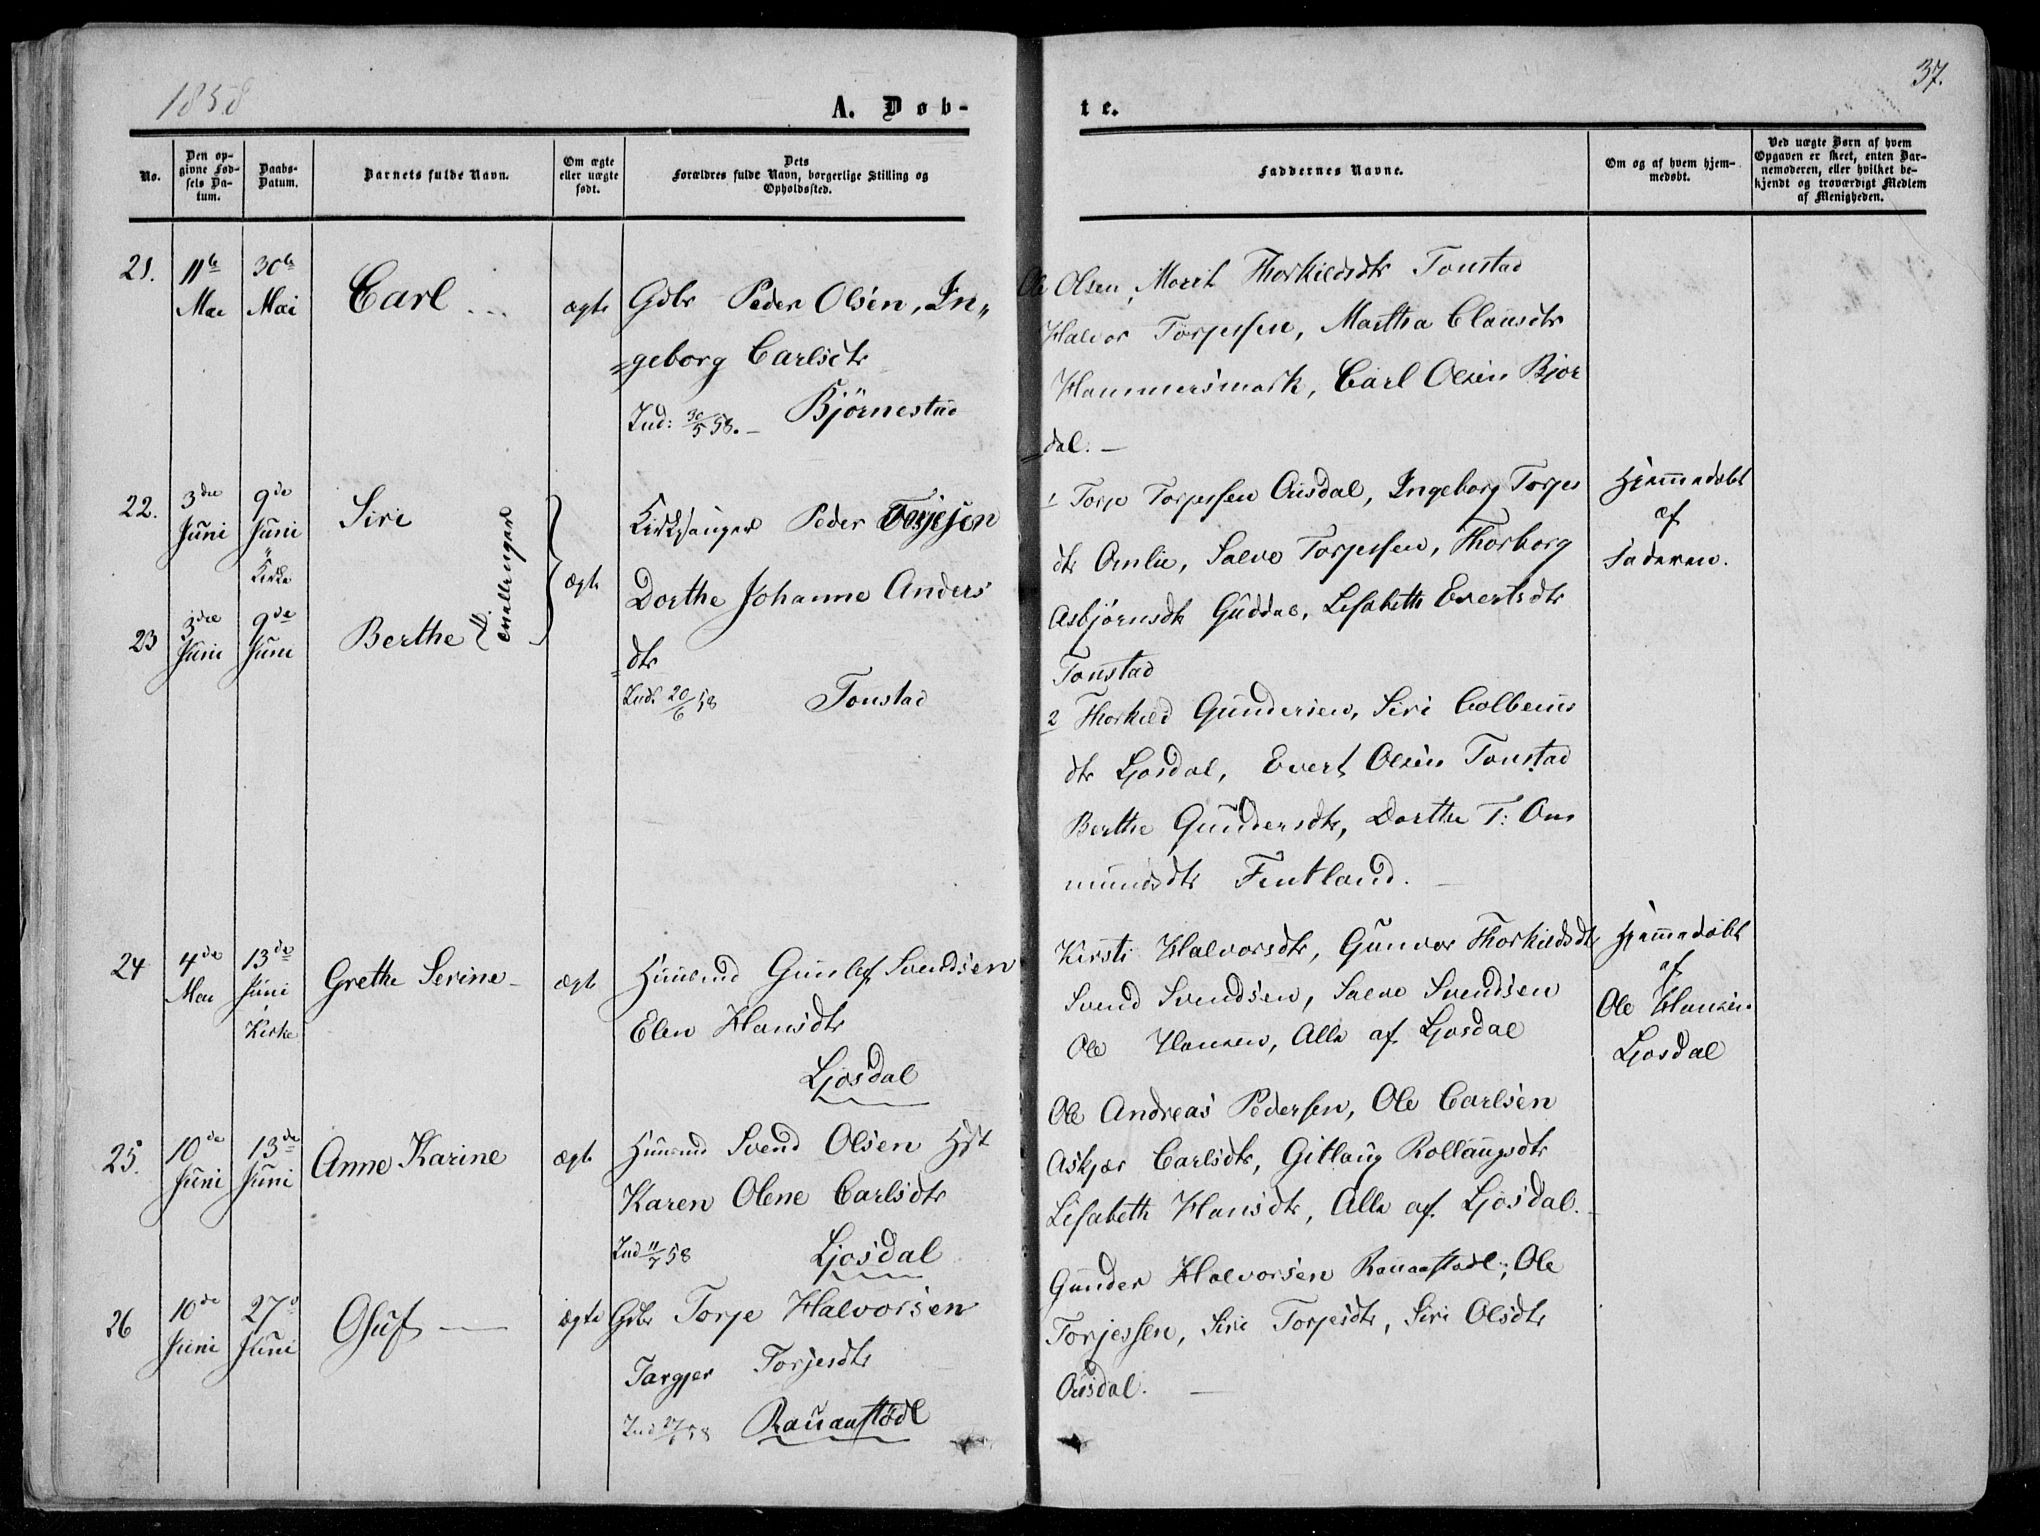 1858
A. Døb-
te.
37.
No.
Den op-
givne Fød-
sels Da-
tum.
Daabs-
Datum.
Barnets fulde Navn.
Om ægte
eller uægte
født.
Dets
Forældres fulde Navn, borgerlige Stilling og
Opholdssted.
Faddernes Navne.
Om og af hvem hjem-
medøbt.
Ved uægte Børn af hvem
Opgaven er skeet, enten Bar-
nemoderen, eller hvilket be-
kjendt og troværdigt Medlem
af Menigheden.
21.
11te
Mai
30te
Mai
Carl
ægte
Gdbr Peder Olsen, In„
=geborg Carlsdtr
Ind: 30/5 58. Bjørnestad
Ole Olsen, Marit Thorkildsdtr Tonstad
Halvor Torjessen, Martha Clausdtr
Hammersmark, Carl Olsen Bjør
=dal. —
22.
3die
Juni
9de
Juni
Kirke
Siri
23
3die
Juni
9de
Juni
Berthe
ægte
Kirkesanger Peder Torjesen
Dorthe Johanne Anders
=dtr
Ind. 20/6 58 Tonstad
1 Torje Torjessen Ousdal, Ingeborg Torjes
dtr Omlie, Salve Torjessen, Thorborg
Asbjørnsdtr Guddal, Lisabeth Evertsdtr
Tonstad
2 Thorkild Gundersen, Siri Colbens
dtr Ljosdal, Evert Olsen Tonstad
Berthe Gundersdtr, Dorthe T: Om
mundsdtr Fintland.
Hjemmedøbt
af
Faderen.
24
4de
Mai
13de
Juni
Kirke
Grethe Serine
ægte
Huusmd Gunlef Svendsen
Elen Hansdtr
Ljosdal
Kirsti Halvorsdtr, Gunvor Thorkildsdtr
Svend Svendsen, Salve Svendsen
Ole Hansen, Alle af Ljosdal
Hjemmedøbt
af
Ole Hansen
Ljosdal
25.
10de
Juni
13de
Juni
Anne Karine
ægte
Huusmd Svend Olsen Hst
Karen Olene Carlsdtr
Ind 11/7 58 Ljosdal
Ole Andreas Pedersen, Ole Carlsen
Askjær Carlsdtr, Gitlaug Rollaugsdtr
Lisabeth Hansdtr, Alle af Ljosdal.
26
10de
Juni
27d
Juni
Oluf
ægte
Gdbr Torje Halvorsen
Targjer Torjesdtr
Ind 27/6 58 Rauaastødl
Gunder Halvorsen Rauaastødl, Ole
Torjessen, Siri Torjesdtr, Siri Olsdtr
Ousdal. —